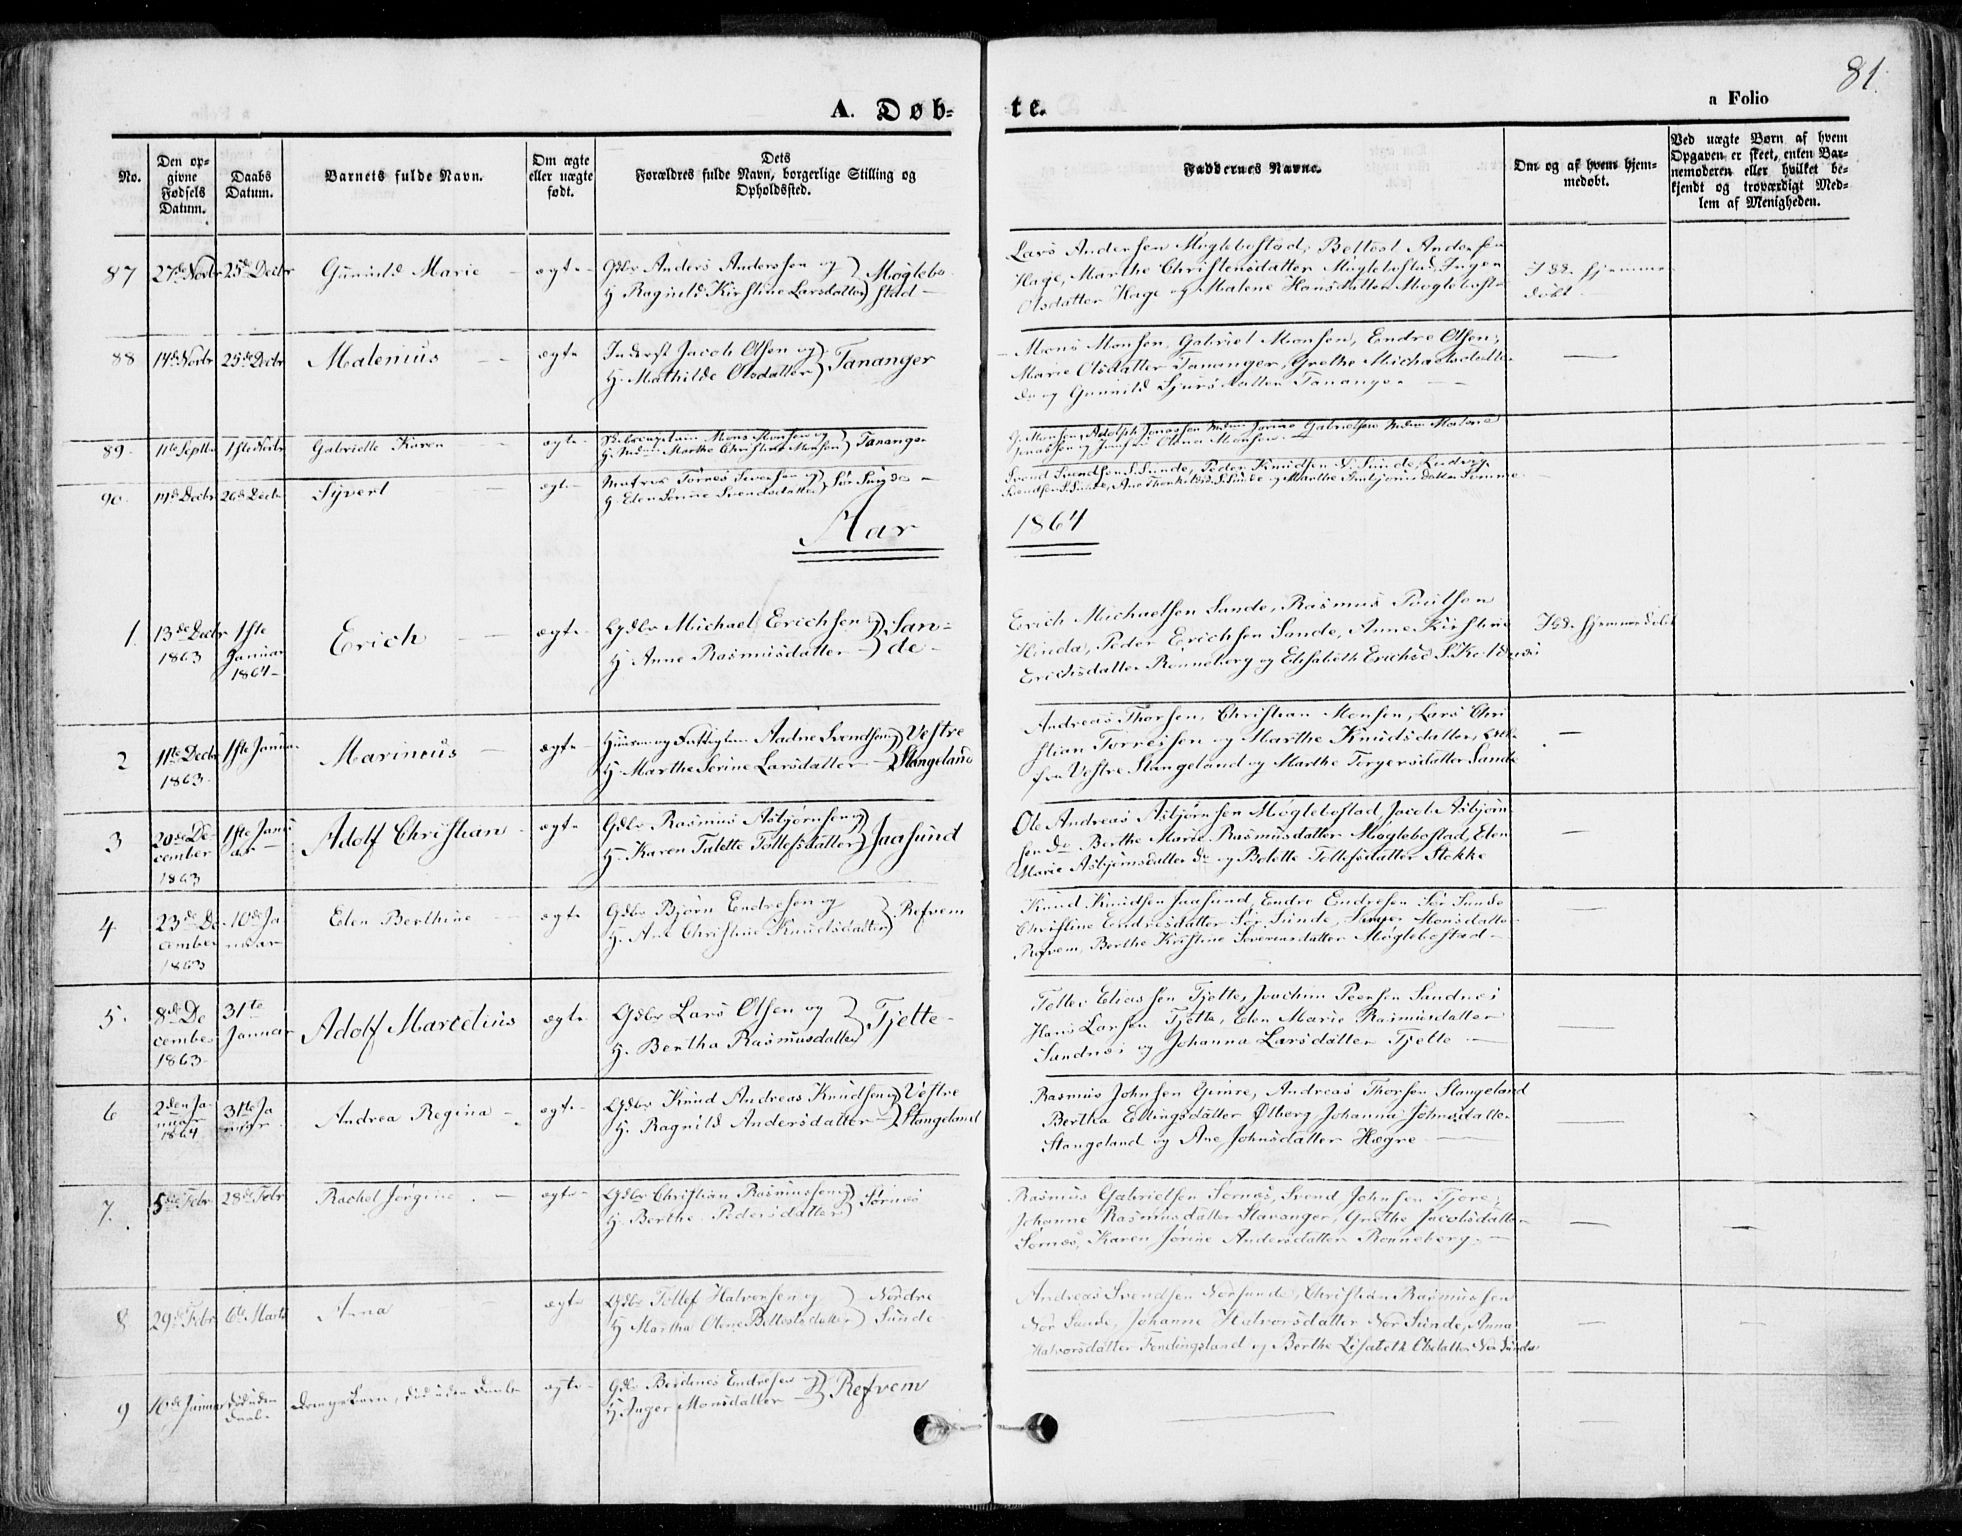 81.
A. Døb-
te.
a Folio
No.
Den op-
givne
Fødsels
Datum.
Daabs
Datum.
Barnets fulde Navn.
Om ægte
eller uægte
født.
Dets
Forældres fulde Navn, borgerlige Stilling og
Opholdssted.
Faddernes Navne.
Om og af hvem hjem-
medøbt.
Ved uægte Børn af hvem
Opgaven er skeet, enten Bar-
nemoderen eller hvilket be-
kjendt og troværdigt Med-
lem af Menigheden.
87 27de Novbr 25de Decbr Gunild Marie ægte Gdbr Anders Andersen og Møglebo-
H. Ragnild Kirstine Larsdatter stad
Lars Andersen Møglebostad, Bottolf Andersen
Hage, Marthe Christensdatter Møglebostad, Inger
Olsdatter Hage og Malene Hansdatter Møglebost.
hjemme-
døbt
88 14de Novbr 25de Decbr Malenius ægte Inderst Jacob Olsen og Tananger
H. Mathilde Olsdatter
Mons Monsen, Gabriel Monsen, Endre Olsen,
Marie Olsdatter Tananger, Grethe Michaelsdatter
do og Gunild Sjursdatter Tananger
89 11te Septbr 1ste Novbr Gabrielle Karen ægte Skibscaptain Mons Monsen og Tananger
H. Marthe Christine Monsen
G. Monsen, Adolph Jonassen
Jonassen og Jomfru Olena Monsen
90. 14de Decbr 26de Decbr Syvert ægte Matros Tørres Sivertsen og Sør Sunde
H. Elen Serine Svendsdatter
Svend Svendsen S. Sunde, Peder Knudsen S. Sunde, Ludvig
Svendsen S. Sunde, og Marthe Sømme
Aar
1864
1. 13de Decbr 1863 1ste Januar 1864 Erich ægte Gdbr Michael Erichsen San-
H. Anne Rasmusdatter de
Erich Michaelsen Sande, Rasmus Poulsen
Hinda, Peder Erichsen Sande, Anne Kirstine
Erichsdatter Rønneberg og Elisabeth Erichsd. S. Kolnes
hjemmedøbt
2 11te Decbr 1863 1ste Januar Marineus ægte Huusm. og Aadne Svendsen Vestre
H. Marthe Serine Larsdatter Stangeland
Andreas Thorsen, Christian Monsen, Lars Chri-
stian Tørresen og Marthe Knudsdatter,
Vestre Stangeland og Marthe Torgersdatter Sande
3 20de December 1863 1ste Januar Adolf Christian ægte Gdbr Rasmus Asbjørnsen og Jaasund
H. Karen Talette Tollefsdatter
Ole Andreas Asbjørnsen Møglebostad, Jacob Asbjørn-
sen do Berthe Marie Rasmusdatter Møglebostad, Elen
Marie Asbjørnsdatter do og Bolette Tollefsdatter Stokke
4. 23de December 1863 10de Januar Elen Berthine ægte Gdbr Bjørn Endresen og Refvem
H. Ane Christine Knudsdatter
Knud Knudsen Jaasund, Endre Endresen Sør Sunde
Christine Endresdatter Sør Sunde, Inger Monsdatter
Refvem, Berthe Kristine Sørensdatter Møglebostad
5. 8de December 1863 31te Januar Adolf Marcelius ægte Gdbr Lars Olsen og Tjelte
H. Bertha Rasmusdatter
Tollef Eliassen Tjelte, Joachim Peersen Sandnes
Hans Larsen Tjelte, Elen Marie Rasmusdatter
Sandnes og Johanna Larsdatter Tjelte
6 2den Januar 1864 31te Januar Andrea Regina ægte Gdbr Knud Andreas Knudsen og Vestre
H. Ragnild Andersdatter Stangeland
Rasmus Johnsen Gimre, Andreas Thorsen Stangeland
Bertha Ellingsdatter Ølberg, Johanne Johnsdatter
Stangeland og Ane Johnsdatter Hægre
7. 5te Febr 28de Febr Rachel Jørgine ægte Gdbr Christian Rasmussen og Sørnes
H. Berthe Pedersdatter
Rasmus Gabrielsen Sørnes, Svend Johnsen Tjore,
Johanne Rasmusdatter Stavanger, Grethe Jacobsdatter
Sørnes, Karen Jørine Andersdatter Rønneberg
8 29de Febr 6te Marts Anna ægte Gdbr Tollef Halvorsen og Nordre
H. Martha Olene Bottolfsdatter Sunde
Andreas Svendsen Nørsunde, Christian Rasmussen
Nør Sunde, Johanne Halvorsdatter Nør Sunde, Anna
Halvorsdatter Fendingsland og Berthe Lisabeth Olsdatter Nør Sunde
9 10de Januar død uden Daab Drengebarn, død uden Daab ægte Gdbr Berdines Endresen og Refvem
H. Inger Monsdatter